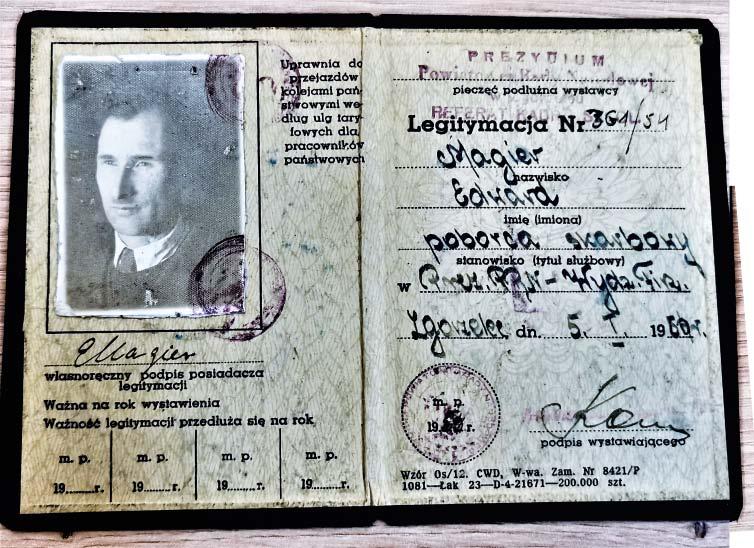 Uprawnia do
przejazdów
kolejami pań-
stwowymi we-
dług ulg tary-
fowych dla
pracowników
państwowych
E Magier
własnoręczny podpis posiadacza
legitymacji
Ważna na rok wystawienia
Ważność legitymacji przedłuża się na rok
m. p. m. p. m. p. m. p.
19........r. 19........r. 19........r. 19........r.
PREZYDIUM
Powiatowej Rady Narodowej
pieczęć podłużna wystawcy
REFERAT
Legitymacja Nr 361/51
Magier
nazwisko
Edward
imię (imiona)
poborca skarbowy
stanowisko (tytuł służbowy)
w Prez. PRN - Wydz. Fin.
dn. 5. I. 19
m. p.
19 r.
podpis wystawiającego
Wzór Os/12. CWD, W-wa. Zam. Nr 8421/P
1081—Łak 23—D-4-21671—200.000 szt.